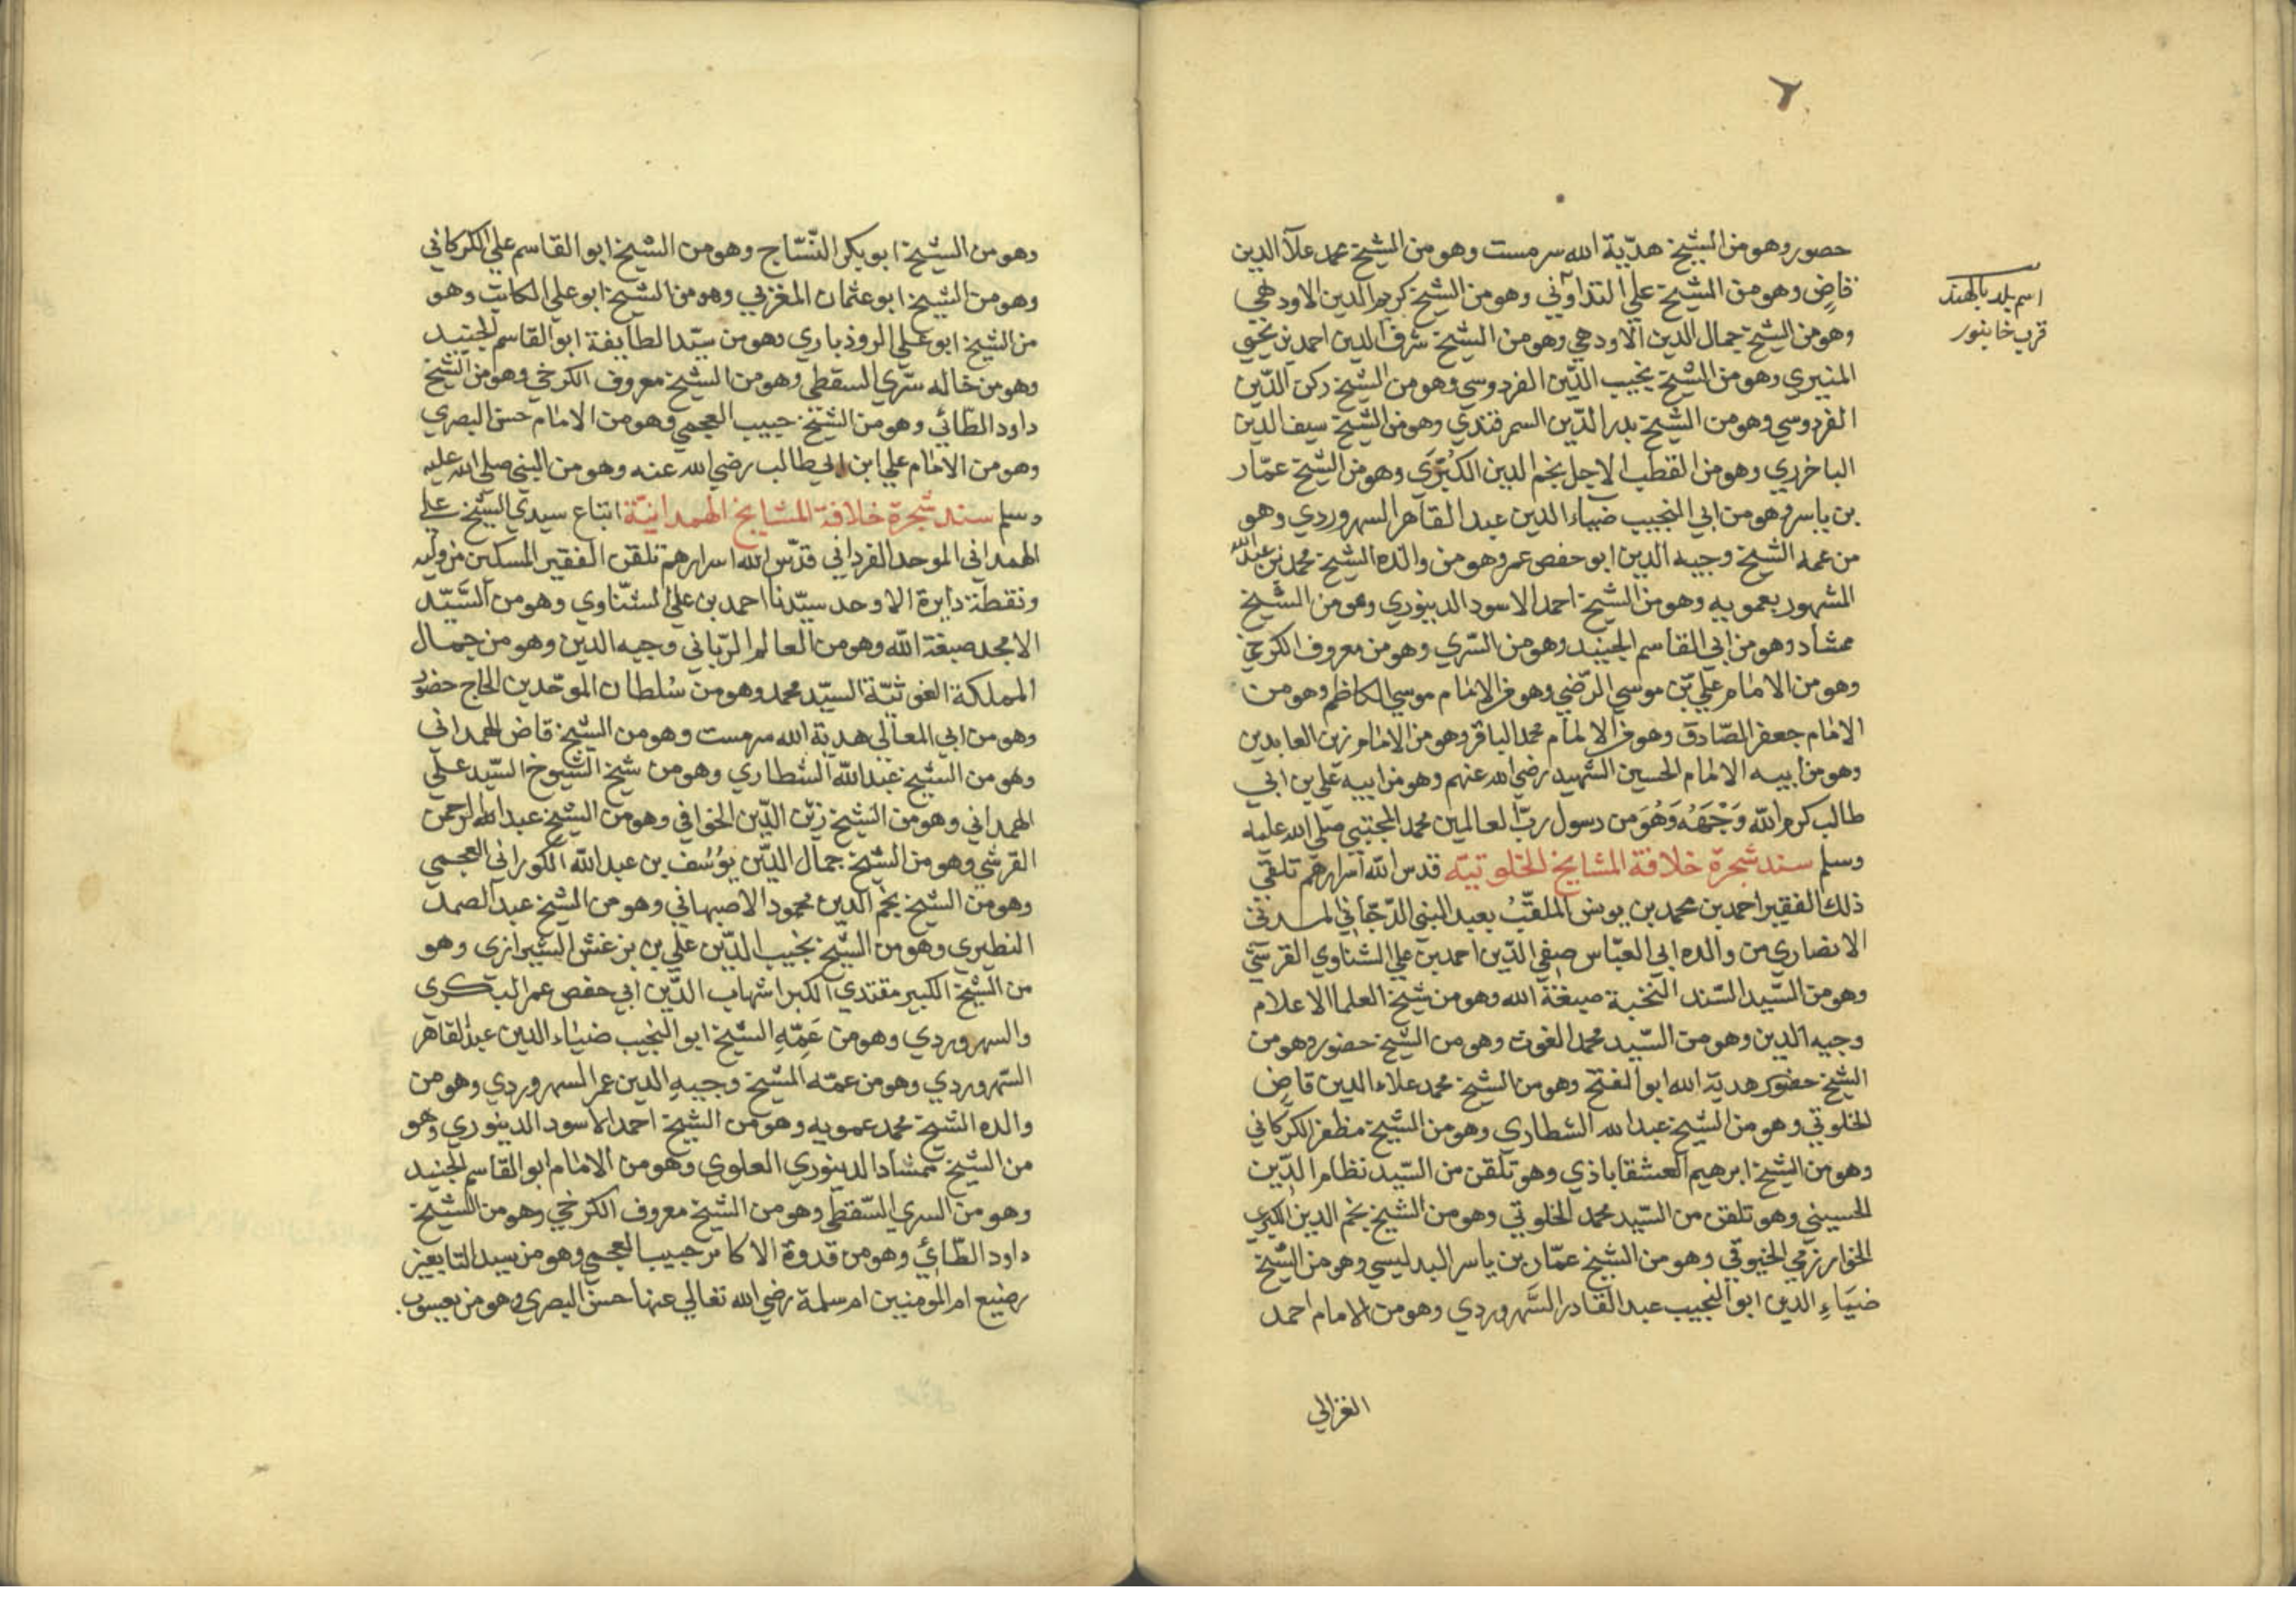 ٢
حصور وهو من الشيخ هديّة الله سرمست وهو من الشيخ محمد علآ الدين
قاضٍ وهو من الشيخ علي وهو من الشيخ كريم الدين الاودهي
وهو من الشيخ جمال الدين الاودهي وهو من الشيخ شرف الدين احمد بن يحيى
المنيري وهو من الشيخ نجيب الدّين الفردوسي وهو من الشيخ ركن الدّين
الفردوسي وهو من الشيخ بدر الدّين السمرقندي وهو من الشيخ سيف الدين
الباخرزي وهو من القطب الاجل نجم الدين الكُبْرَى وهو من الشيخ عمّار
بن ياسر وهو من ابي النجيب ضياء الدين عبد القاهر السهروردي وهو
من عمه الشيخ وجيه الدين ابو حفص عمر وهو من والده الشيخ محمد بن عبد الله
المشهور بعمويه وهو من الشيخ احمد الاسود الدينوري وهو من الشيخ
ممشاد وهو من ابي القاسم الجنيد وهو من السّري وهو من معروف الكرخي
وهو من الامام علي بن موسي الرّضي وهو من الامام موسي الكاظم وهو من
الامام جعفر الصّادق وهو من الامام محمد الباقر وهو من الامام زين العابدين
وهو من ابيه الامام الحسين الشهيد رضي الله عنهم وهو من ابيه علي بن ابي
طالب كرم الله وَجْهَهُ وَهُوَ من رسول ربّ العالمين محمد المجتبي صلي الله عليه
وسلم سند شجرة خلافة المشايخ الخلوتيّه قدس الله اسرارهم تلقي
ذلك الفقير احمد بن محمد بن يونس الملقّبُ بعبد النبي الدّجاني المدني
الانصاري من والده ابي العبّاس صفي الدّين احمد بن علي الشناوي القرشي
وهو من السّيد السّند النخبة صبغة الله وهو من شيخ العلما الاعلام
وجيه الدين وهو من السّيد محمد الغوث وهو من الشيخ حضور وهو من
الشيخ حضور هدية الله ابو الفتح وهو من الشيخ محمد علاء الدين قاضٍ
الخلوتي وهو من الشيخ عبد الله الشطاري وهو من الشيخ مظفر الكركاني
وهو من الشيخ ابرهيم العشقاباذي وهو تلقن من السّيد نظام الدّين
الحسيني وهو تلقن من السّيد محمد الخلوتي وهو من الشيخ نجم الدين الكبري
الخوارزمي الخيوقي وهو من الشيخ عمّار بن ياسر البدليسي وهو من الشيخ
ضيَاءِ الدين ابو النجيب عبد القادر السَّهروردي وهو من الامام احمد
الغزالي
اسم بلد بالهند
قرب خانبور
وهو من الشيخ ابو بكر النّسّاج وهو من الشيخ ابو القاسم علي الكركاني
وهو من الشيخ ابو عثمان المغربي وهو من الشيخ ابو علي الكاتب وهو
من الشيخ ابو علي الروذباري وهو من سيّد الطايفة ابو القاسم الجنيد
وهو من خاله سّري السقطي وهو من الشيخ معروف الكرخي وهو من الشيخ
داود الطّائي وهو من الشيخ حبيب العجمي وهو من الامام حسن البصري
وهو من الامام علي ابن ابي طالب رضي الله عنه وهو من النبي صلي الله عليه
وسلم سند شجرة خلافة المشايخ الهمدانيّة اتباع سيدي الشيخ علي
الهمداني الموحد الفرداني قدّس الله اسرارهم تلقن الفقير المسكين من وليه
ونقطة دايرة الاوحد سيّدنا احمد بن علي الشنّاوي وهو من السَّيّد
الامجد صبغة الله وهو من العالم الرّباني وجيه الدين وهو من جمال
المملكة الغوثيّة السيّد محمد وهو من سُلطان الموحّدين الحاج حضور
وهو من ابي المعالي هدية الله سرمست وهو من الشيخ قاض الهمداني
وهو من الشيخ عبد الله الشطاري وهو من شيخ الشيوخ السّيد علي
الهمداني وهو من الشيخ زين الدّين الخوافي وهو من الشيخ عبد الرحمن
القرشي وهو من الشيخ جمال الدّين يوُسُف بن عبد الله الكوراني العجمي
وهو من الشيخ نجم الدين محمود الاصبهاني وهو من الشيخ عبد الصمد
النطيري وهو من الشيخ نجيب الدّين علي بن بزغش الشيرازي وهو
من الشيخ الكبير مقتدي الكبرا شهاب الدّين ابي حفص عمر البكري
والسهروردي وهو من عَمّهِ الشيخ ابو النجيب ضياء الدين عبد القاهر
السّهروردي وهو من عمّه الشيخ وجيهِ الدين عمر السهروردي وهو من
والده الشيخ محمد عمويه وهو من الشيخ احمد الاسود الدينوري وهو
من الشيخ ممشاد الدينوري العلوي وهو من الامام ابو القاسم الجنيد
وهو من السري السّقطي وهو من الشيخ معروف الكرخي وهو من الشيخ
داود الطّائي وهو من قدوة الاكابر حبيب العجمي وهو من سيد التابعين
رضيع ام المومنين ام سلمة رضي الله تعالي عنها حسن البصري وهو من يعسوب